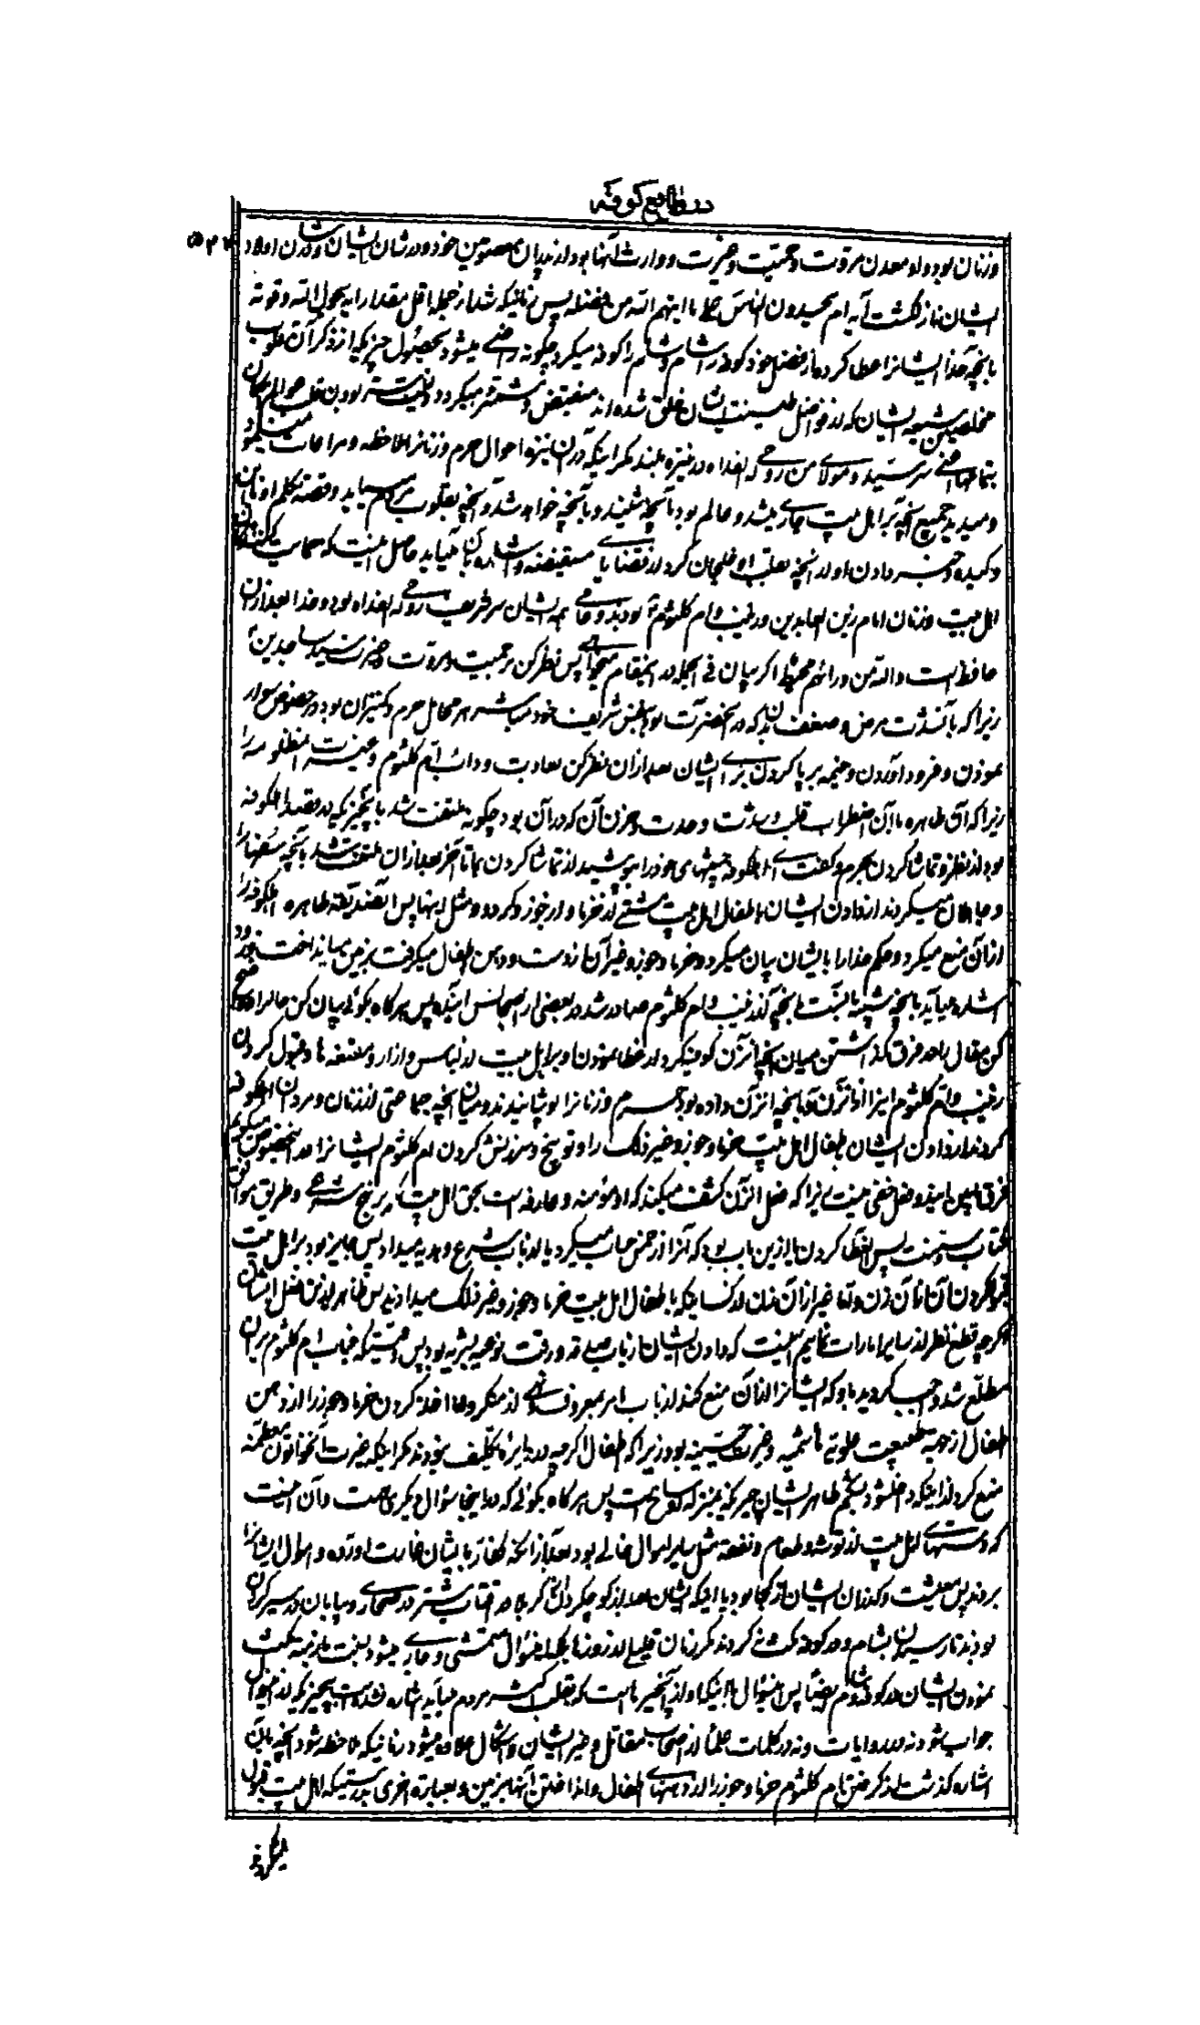 در وقایع کوفه
و زنان بود و او معدن مروت و حمیت و غیرت و وارث آنها بود از پدران معصومین خود و در شان ایشان و شان اولاد
ایشان نازل گشت آیه ام یحسدون الناس علی ما اتیهم الله من فضله پس زمانیکه شد از جمله اقل مقدار ایه بحول الله و قوته
بآنچه خدا ایشانرا عطا کرده از فضل خود کوفه را شام و شام را کوفه میکرد چگونه راضی میشود بحصول چیزیکه از ذکر آن قلوب
مخلصین شیعه ایشان که از فواضل طینت ایشان خلق شده‌اند منقبض و مشمئز میگردد و قلب
بتمامها یعنی سر سید و مولای من روحی له الفداه در نیزه بلند مگر اینکه در آن نیزه احوال حرم و زنانرا ملاحظه و مراعات مینمود
و میدید جمیع آنچه بر اهل بیت جاری میشد و عالم بود بآنچه شنیدند و بآنچه خواهد شد و آنچه بقلوب مردم میاید و قصه تکلم او
و خبر دادن او از آنچه بقلب او خلجان کرد از قضایای مستفیضه و اشاره بآن میاید حاصل اینست که حمایت کننده
اهل بیت و زنان امام زین العابدین و زینب و ام کلثوم بودند و حامی همه ایشان سر شریف روحی له الفداه بود و خدا بعد از آن
حافظ است و الله من ورائهم محیط اگر بیان فی الجمله در اینمقام میخواهی پس نظر کن بر حمیت و مروت و غیرت سید ساجدین
زیرا که با آنشدت مرض و ضعف بدن که در آنحضرت بود بنفس شریف خود مباشر هر محامل حرم و کنیزان بود در خصوص سوار
نمودن و فرود آوردن و خیمه بر پا کردن برای ایشان بعد از آن نظر کن بعادت و داب ام کلثوم و غیرت آن مظلومه را
زیرا که آن طاهره با آن اضطراب قلب و شدت و حدت و حزن آن که در آن بود چگونه ملتفت شد بآنچیزیکه در مقصد اهل کوفه
بود از نظر و تماشا کردن بحرم و گفت ای اهل کوفه چشمهای خود را بپوشید از تماشا کردن بما تا آخر بعد از آن ملتفت شد بآنچه
و جاهلان میکردند از دادن ایشان باطفال اهل بیت مشتی از خرما و از جوز و گردو و مثل اینها پس آنصدیقه طاهره اهل کوفه را
از آن منع میکرد و حکم خدا را بایشان بیان میکرد و خرما و جوز و غیر آن از دست و دهن اطفال میگرفت بزمین میانداخت
اشاره میآید بآنچه شبیه باینست بآنچه از زینب و ام کلثوم صادر شد در بعضی از مجالس اینده پس هر گاه بگوئی بیان کن حال را
کن مقال را در فرق گذاشتن میان آنچه آنزن کوفیه کرد از عطا نمودن او بر اهل بیت از لباس و ازار و مقنعه‌ها و قبول کردن
زینب و ام کلثوم اینرا از آنزن و بآنچه آنزن داده بود حرم و زنانرا پوشانیدند و میان آنچه جماعتی از زنان و مردان اهل کوفه
کردند از دادن ایشان باطفال اهل بیت خرما و جوز و غیر ذلک را و توبیخ و سرزنش کردن ام کلثوم ایشانرا در اینخصوص میگویم
فرق مابین ایندو فعل خفی نیست زیرا که فعل آنزن کشف میکند که او مؤمنه و عارفه است بحق اهل بیت بر نهج شرعی و طریق موافق
کتاب و سنت پس این عطا کردن یا از این باب بود که آنرا از خمس حساب میکرد یا از باب تبرع و هدیه میداد پس جایز بود بر اهل بیت
قبول کردن آن از آن زن و اما غیر از آن زن از کسانیکه باطفال اهل بیت خرما و جوز و غیر ذلک میدادند پس ظاهر از این فعل ایشان
اگر چه قطع نظر از سایر امارات نمائیم اینست که دادن ایشان از باب صدقه و رقت نوعیه بشریه بود پس وقتیکه جناب ام کلثوم بر آن
مطلع شد واجب گردید باو که ایشانرا از آن منع کند از باب امر بمعروف و نهی از منکر و اما اخذ کردن خرما و جوز را از دهن
اطفال از جهة طبیعت علویه هاشمیه و غیرت حسینیه بود زیرا که اطفال اگر چه در دایره تکلیف نبودند مگر اینکه غیرت آنخاتون معظمه
منع کرد از اینکه داخل شود بشکم طاهر ایشان چیزیکه بمنزله اوساخ است پس هر گاه بگوئی که در اینجا سؤال دیگری هست و آن اینست
که دستهای اهل بیت از توشه و طعام و نفقه مثل سایر اموال خالی بود بعد از آنکه کفار بایشان غارت اورده و اموال ایشانرا
بردند پس معیشت و گذران ایشان از کجا بود با اینکه ایشان بعد از کوچ کردن از کربلا در آفتاب شتر در صحاری و بیابان در سیر کردن
بودند تا رسیدن بشام و در کوفه مکث نکردند مگر زمان قلیلی از روزها بلکه این سؤال متمشی و جاری میشود بنسبت بازمنه مکث
نمودن ایشان در کوفه و شام ایضا پس این سؤال با اینکه اول چیزیست که بقلب اکثر مردم میآید اشاره نشده است بچیزیکه از این سؤال
جواب شود نه در روایات و نه در کلمات علما از اصحاب مقاتل و غیر ایشان و اشکال علاوه میشود زمانیکه ملاحظه شود آنچه بآن
اشاره گذشت از گرفتن ام کلثوم خرما و جوز را از دهنهای اطفال و انداختن آنها بزمین و بعبارة اخری بدرستیکه اهل بیت قبول
نمیکردند